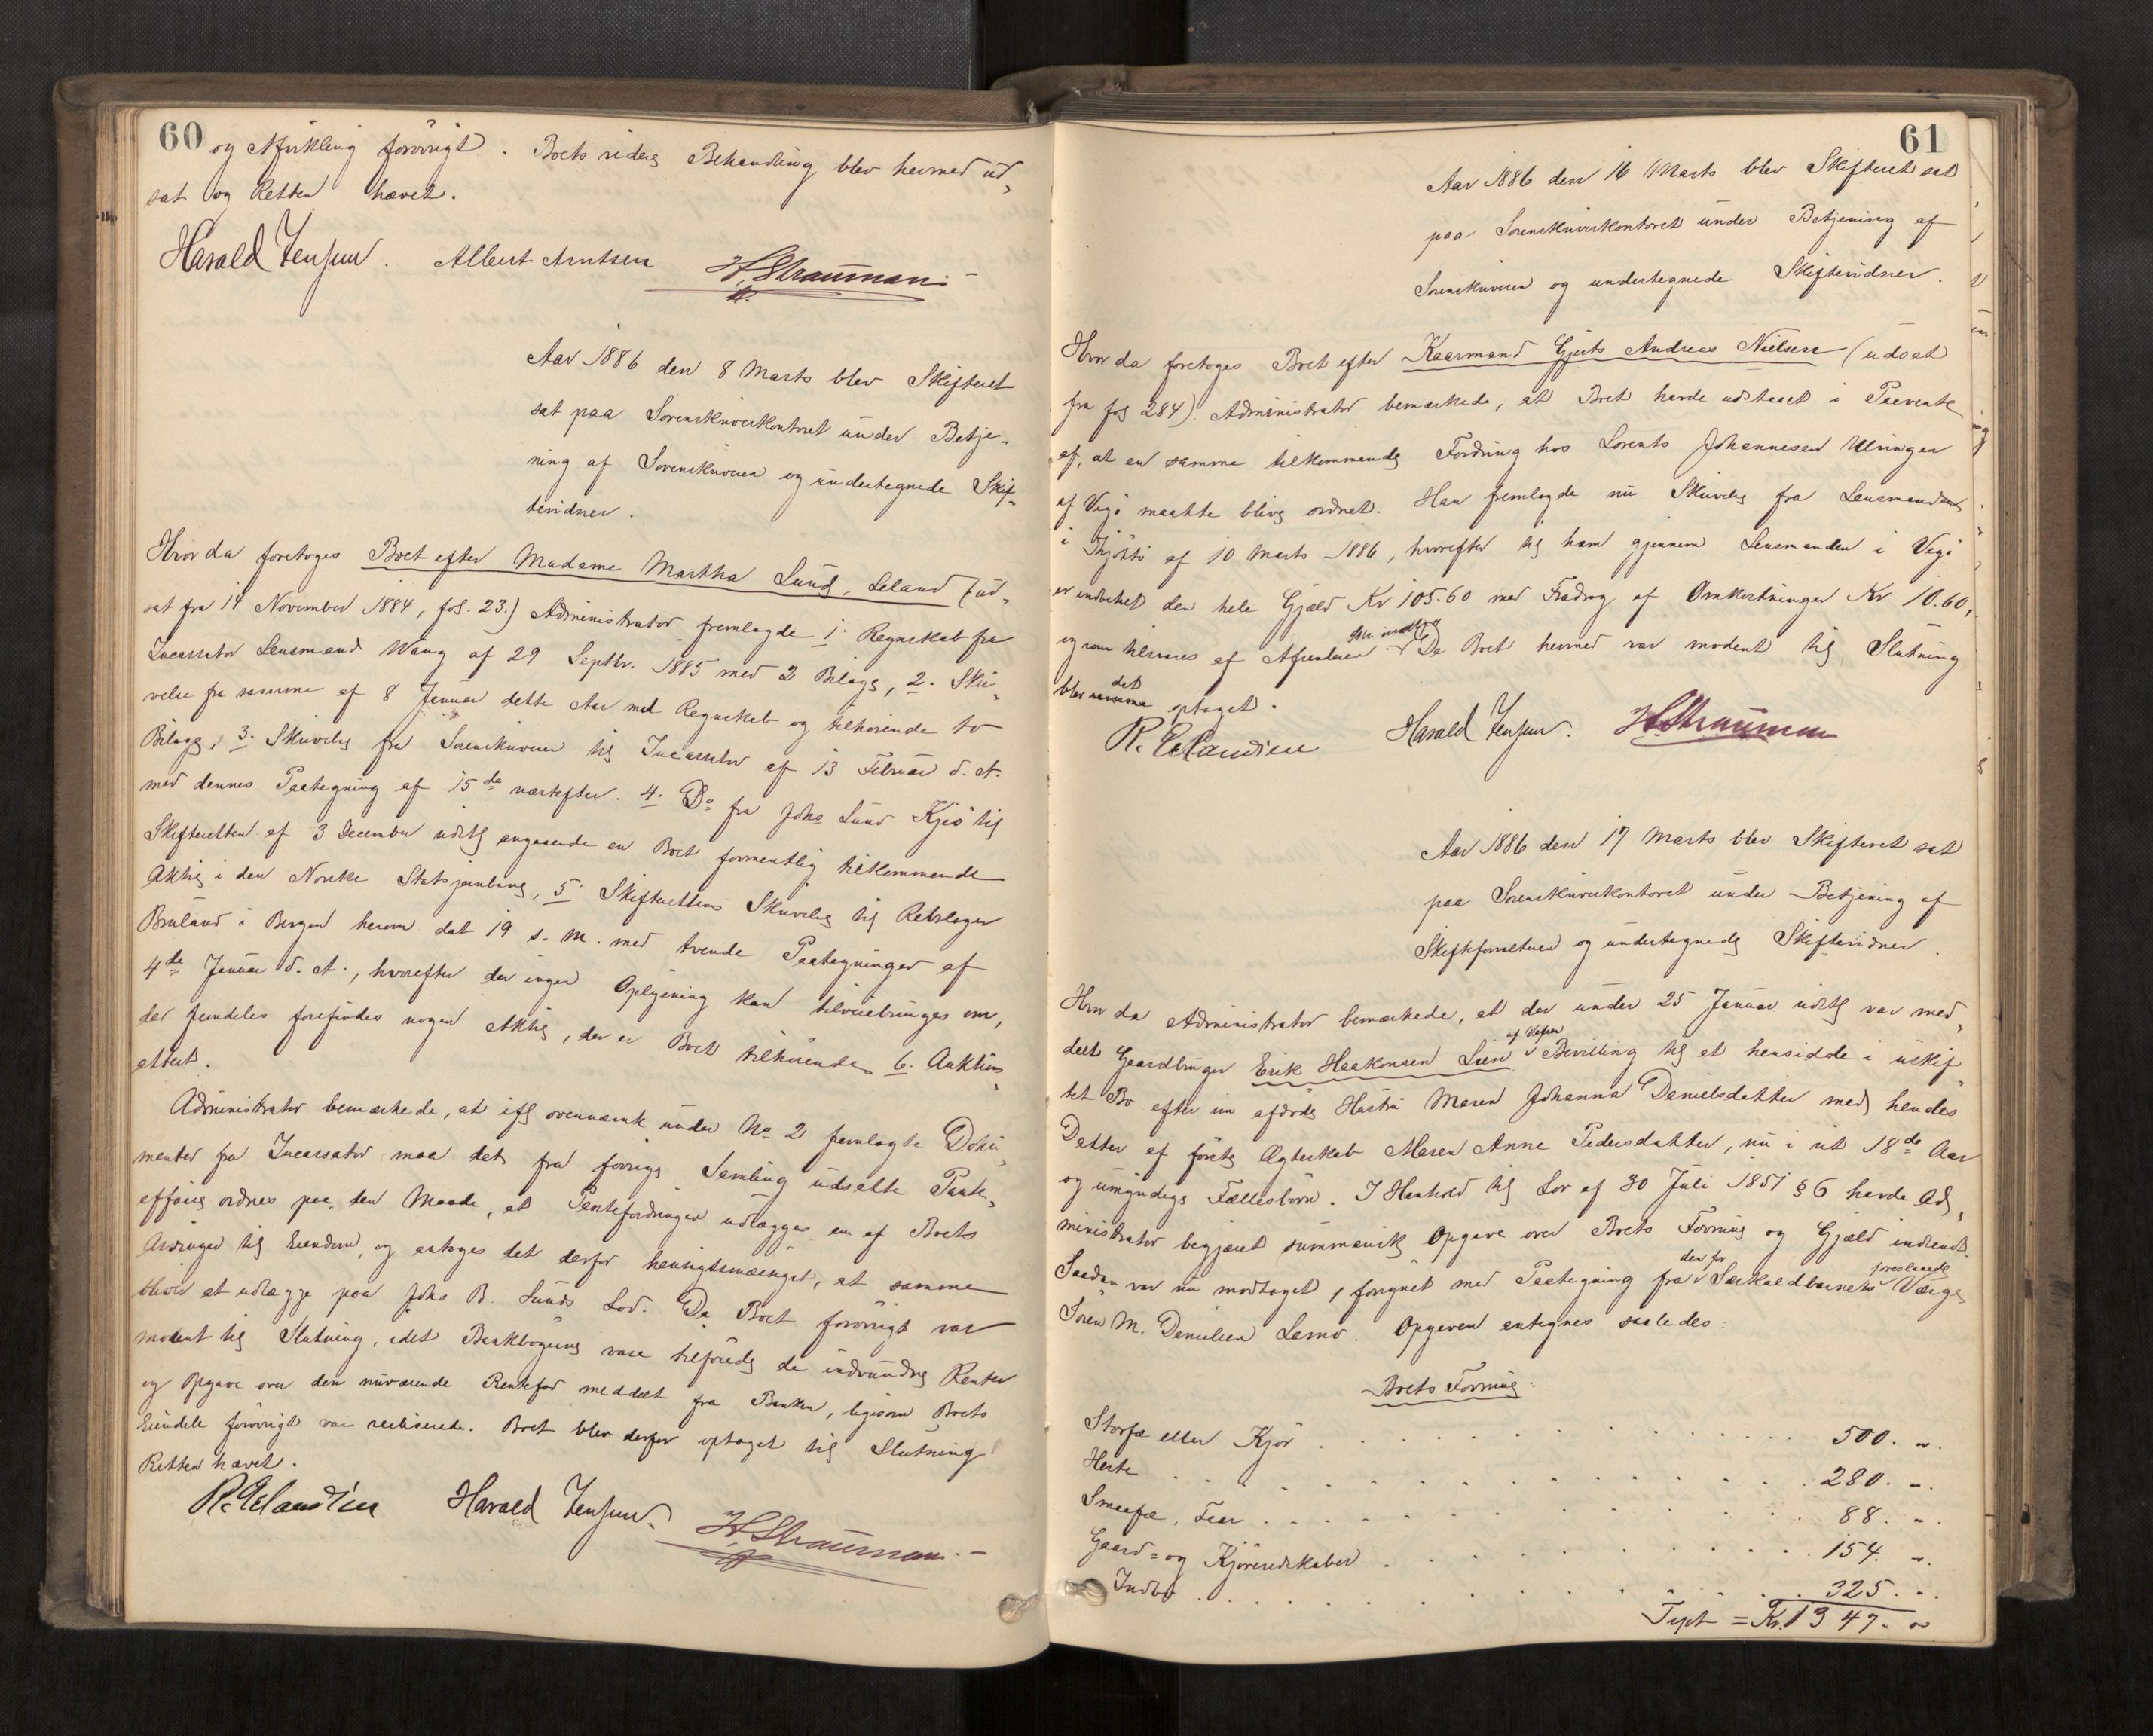 60
og Afvikling forövrigt. Boets videre Behandling blev hermed ud„
sat og Retten hævet.
Harald Jensen. Albert Arntsen H. Strauman
Aar 1886 den 8 Marts blev Skifteret
sat paa Sorenskriverkontoret under Betje„
ning af Sorenskriveren og undertegnede Skif„
tevidner.
Hvor da foretoges Boet efter Madame Martha Lund, Leland (ud„
sat fra 14 November 1884, fol. 23.) Administrator fremlagde 1. Regnskab fra
Incassator Lensmand Wang af 29 Septbr. 1885 med 2 Bilage, 2. Skri„
velse fra samme af 8 Januar dette Aar med Regnskab og tilhörende to
Bilage, 3. Skrivelse fra Sorenskriveren til Incassator af 13 Februar d. A.
med dennes Paategning af 15de næstefter. 4. Do fra Johs Lund Kjeö til
Skifteretten af 3 December sidstl angaaende en Boet formentlig tilkommende
Aktie i den Norske Statsjernbane, 5. Skifterettens Skrivelse til Rebslager
Bruland i Bergen herom dat 19 s. M. med tvende Paategninger af
4de Januar d. A., hvorefter der ingen Oplysning kan tilveiebringes om,
der fremdeles forefindes nogen Aktie, der er Boet tilhörende, 6. Auktions„
attest.
Administrator bemærkede, at ifl ovennævnte under No 2 fremlagte Doku„
menter fra Incassator maa det fra forrige Samling udsatte Pante„
ordnes paa den Maade, at Pantefordringen udlægges en af Boets
Arvinger til Eiendom, og antoges det derfor hensigtsmæssigst, at samme
bliver at udlægge paa Johs B. Lunds Lod. Da Boet forövrigt var
modent til Slutning, idet Bankbögerne vare tilförte de indvundne Renter
og Opgave over den nuværende Rentefod meddelt fra Banken, ligesom Boets
Eiendele forövrigt var realiserede. Boet blev derfor optaget til Slutning
Retten hævet.
R. Erlandsen Harald Jensen. H. Strauman
61
Aar 1886 den 16 Marts blev Skifteret sat
paa Sorenskriverkontoret under Betjening af
Sorenskriveren og undertegnede Skiftevidner.
Hvor da foretoges Boet efter Kaarmand Gjerts Andreas Nielsen (udsat
fra fol 284). Administrator bemærkede, at Boet havde udstaaet i Paavente
af, at en samme tilkommende Fordring hos Lorents Johannesen
af Vegö maatte blive ordnet. Han fremlagde nu Skrivelse fra Lensmanden
i Thjöttö af 10 Marts 1886, hvorefter til ham gjennem Lensmanden i Vegö
er indbetalt den hele Gjæld Kr 105.60 med Fradrag af Omkostninger Kr 10.60,
og som tilsvares af Afsenderen. Da Boet hermed var modent til Slutning
blev samme det optaget.
R. Erlandsen Harald Jensen. H. Strauman
Aar 1886 den 17 Marts blev Skifteret sat
paa Sorenskriverkontoret under Betjening af
Skifteforvalteren og undertegnede Skiftevidner.
Hvor da Administrator bemærkede, at der under 25 Januar sidstl var med„
delt Gaardbruger Erik Haakonsen Lien Bevilling til at hensidde i uskif„
tet Bo efter sin afdöde Hustru Maren Johanna Danielsdatter med hendes
Datter af förste Ægteskab Maren Anne Pedersdatter, nu i sit 18de Aar
og umyndige Fællesbörn. I Henhold til Lov af 30 Juli 1851 § 6 havde Ad„
ministrator begjæret summarisk Opgave over Boets Formue og Gjæld indsendt.
Saadan var nu modtaget, forsynet med Paategning fra den for Særkuldbarnets foreslaaede Værge
Sören M. Danielsen Lamo. Opgaven antegnes saaledes:
Boets Formue:
Storfæ eller Kjör . . . . . . 500. „.
Heste . . . . . . 280. „.
Smaafæ, Faar . . . . . . 88. „.
Gaard= og Kjöreredskaber . . . . . . 154. „.
Indbo . . . . . . 325. „.
= Kr. 1347. „